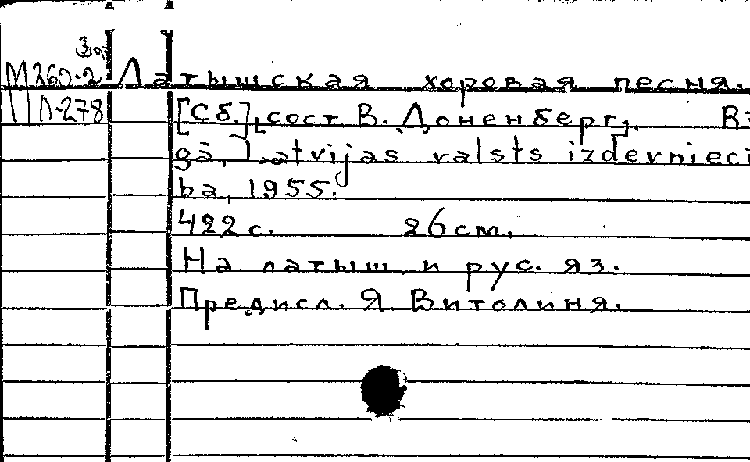 М260-2 Латышская хоровая песня.
Л-278 [Сб.], сост. В. Доненберг,
gā, Latvijas valsts izdevnieci
ba, 1955.
422 с. 26 см.
На латыш. и рус. яз.
Предисл. Я. Витолиня.